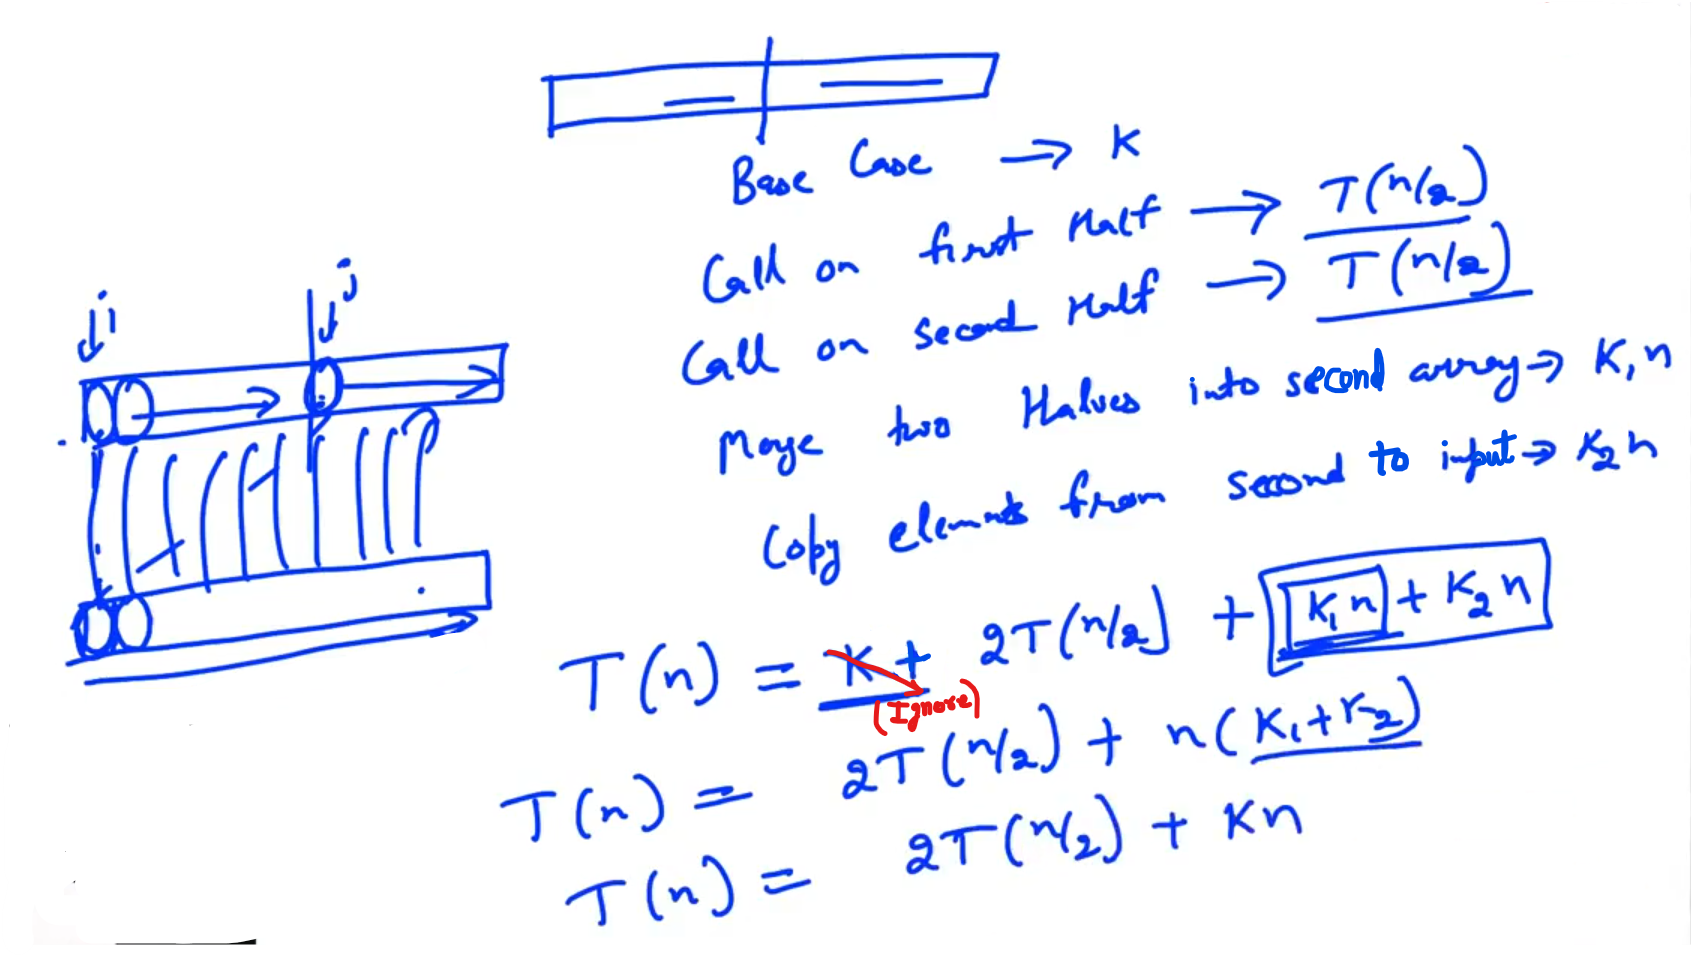 Base Case → K
Call on first Half → T(n/2)
Call on second Half → T(n/2)
Merge two Halves into second array → K₁n
Copy elements from second to input → K₂n
i
j
T(n) = K + 2T(n/2) + K₁n + K₂n
(Ignore)
T(n) = 2T(n/2) + n(K₁+K₂)
T(n) = 2T(n/2) + Kn